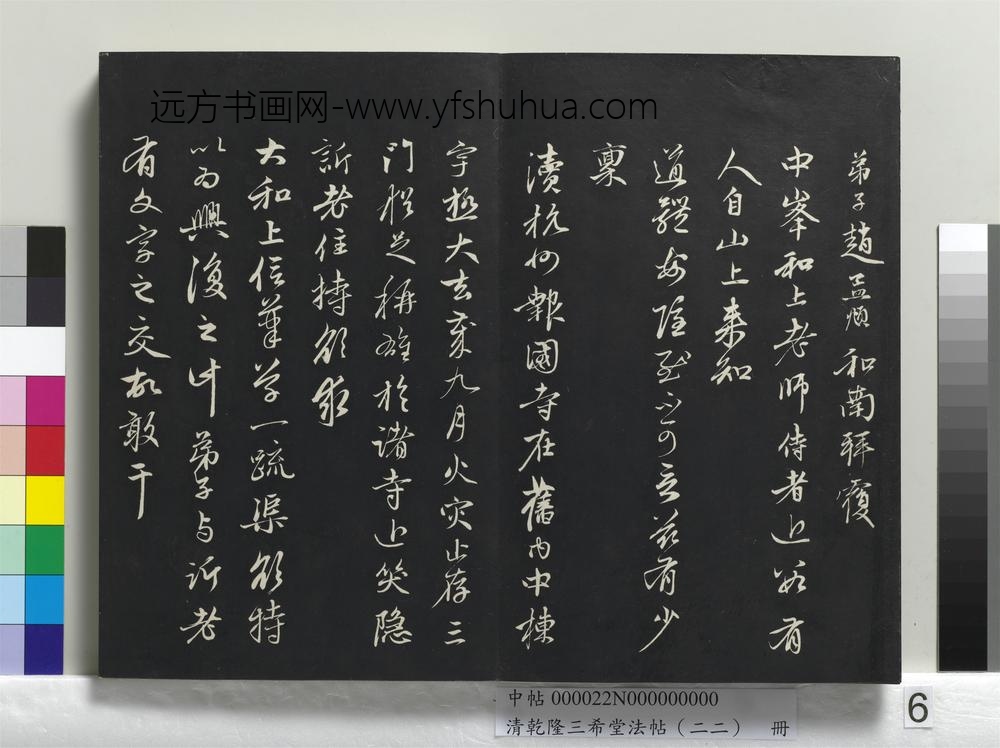 远方书画网-www.yfshuhua.com
弟子趙孟頫和南拜覆
中峯和上老師侍者近有
人自山上来知
道體安隱慰不可言茲有少
稟
瀆杭州報國寺在舊内中棟
宇極大去歲九月火灾止存三
門足稱雄於諸寺近笑隱
訢老住持欲求
大和上信筆草一疏渠欲持
以為興復之计弟子与訢老
有文字之交故敢干
中帖 000022N000000000
清乾隆三希堂法帖（二二） 冊
6